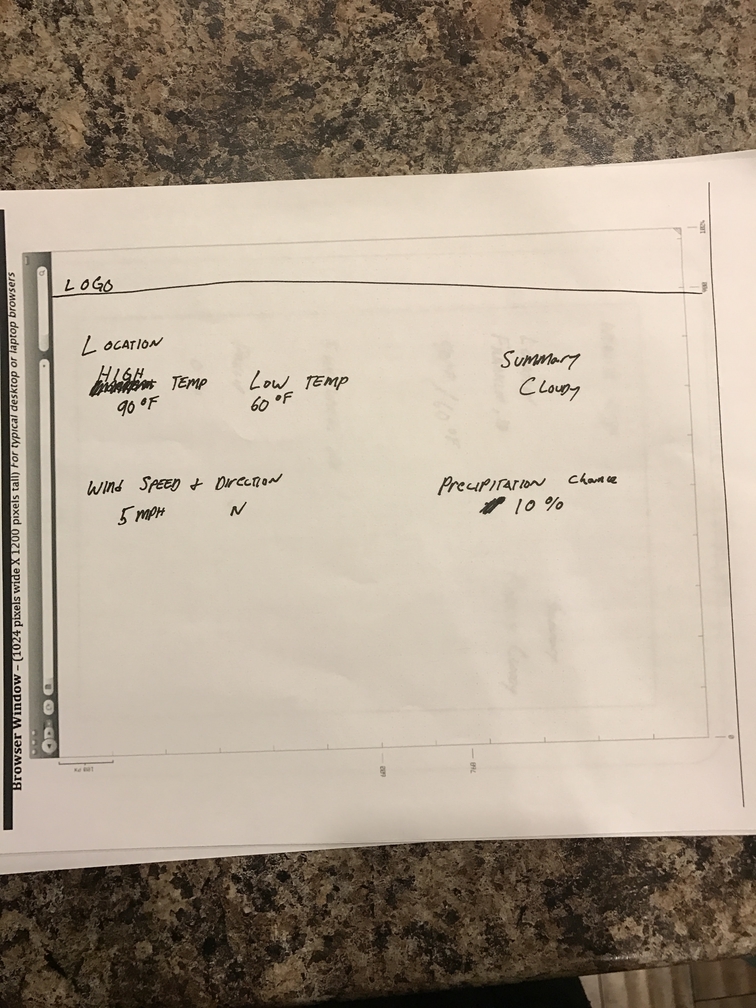 Browser Window – (1024 pixels wide X 1200 pixels tall) For typical desktop or laptop browsers
LOGO
LOCATION
HIGH TEMP LOW TEMP
90 °F 60 °F
Summary
Cloudy
WINd SPEED & DIRECTION
5 MPH N
PRECIPITATION Chance
10 %
1024
0
100 PX
600
760